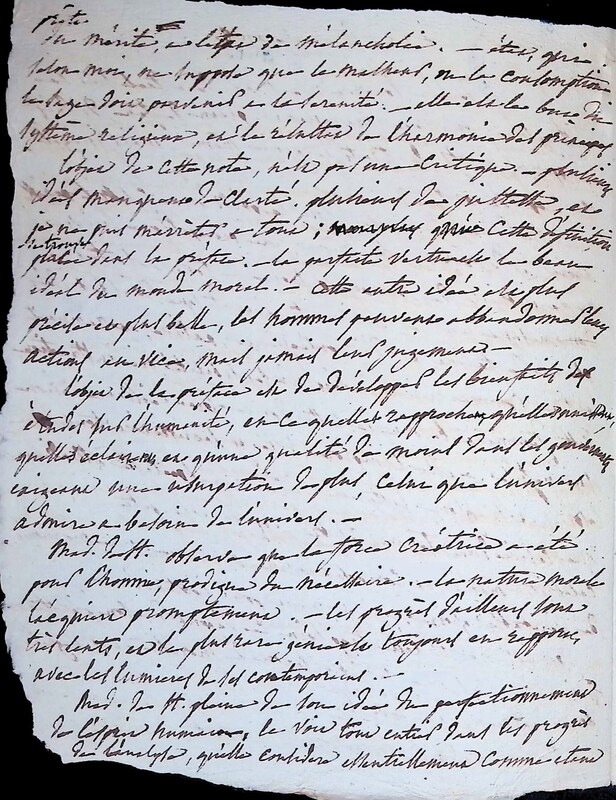 du mérite, a l'etat de mélancholie. — état, qui
selon moi, ne suppose que le malheur, ou la consomption
le sage doit parvenir a la serenité. — elle est la base du
systême religieux, est le résultat de l'harmonie des principes
l'objet de cette note, n'est pas une critique. — plusieurs
idées manquent de clarté. plusieurs de justesse, et
je ne puis m'arrêter a tous; cette définition
se trouve
placée dans la préface. — la parfaite vertu est le beau
idéal du monde moral. — cette autre idée est plus
précise et plus belle, les hommes peuvent abbandonner leurs
actions au vice, mais jamais leur jugement —
l'objet de la préface est de développer les bienfaits des
études sur l'humanité, en ce quelles rapprochent,
quelles eclairent, et qu'une qualité de moins dans les gouvernants
exigeant une usurpation de plus celui que l'univers
admire a besoin de l'univers. —
Mad. de St. observe que la force créatrice a été
pour l'homme, prodigue du nécessaire. — la nature morale
s'acquiert promptement. — les progrès d'ailleurs sont
très lents, et le plus rare génie est toujours en rapport
avec les lumieres de ses contemporains. —
Mad. de St. pleine de son idée du perfectionnement
de l'esprit humain, le voit tout entier dans les progrès
de l'analyse, qu'elle considere essentiellement comme etant